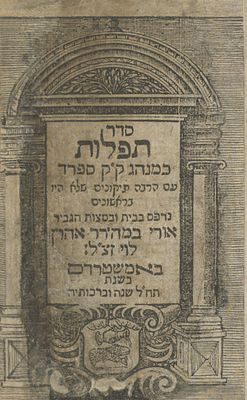 סדר
תפלות
כמנהג ק״ק ספרד
עם הרבה תיקונים שלא היו
בראשונים
נדפס בבית ובמצות הגביר
אורי במהר״ר אהרן
לוי זצ״ל׃
באמשטרדם
בשנת
תח״ל שנה וברכותיה